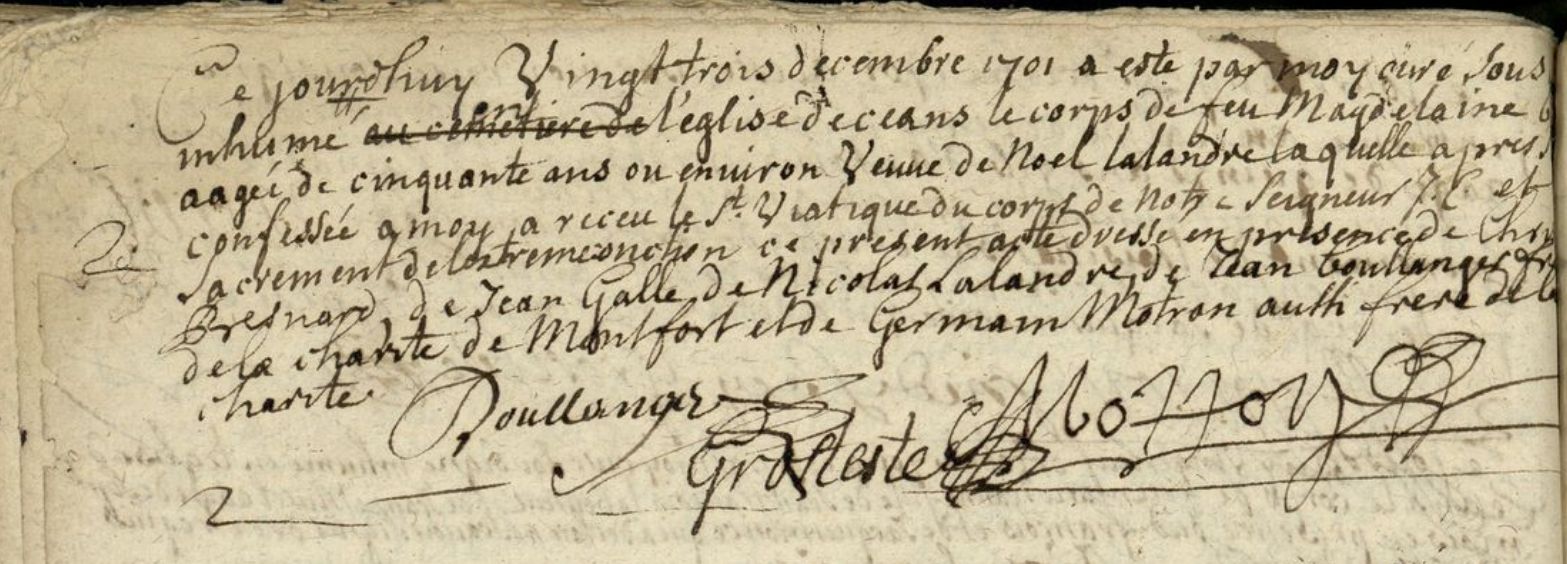 Ce jourdhuy Vingt trois decembre 1701 a este par moy curé sous
inhumé au cemetiere de en l'eglise de ceans le corps de feu Magdelaine
aagée de cinquante ans ou environ Veuue de Noel lalandre laquelle apres
confessée a moy a receu le St. Viatique du corps de Notre Seigneur J. C. et
2e
Sacrement de lextremeonction ce present acte dressé en presence de
Bresnard, de Jean Galle de Nicolas Lalandre, de Jean boullanger
de la charite de Montfort et de Germain Motron aussi frere de la
charite
Boullanger
Grosteste
Motron
2